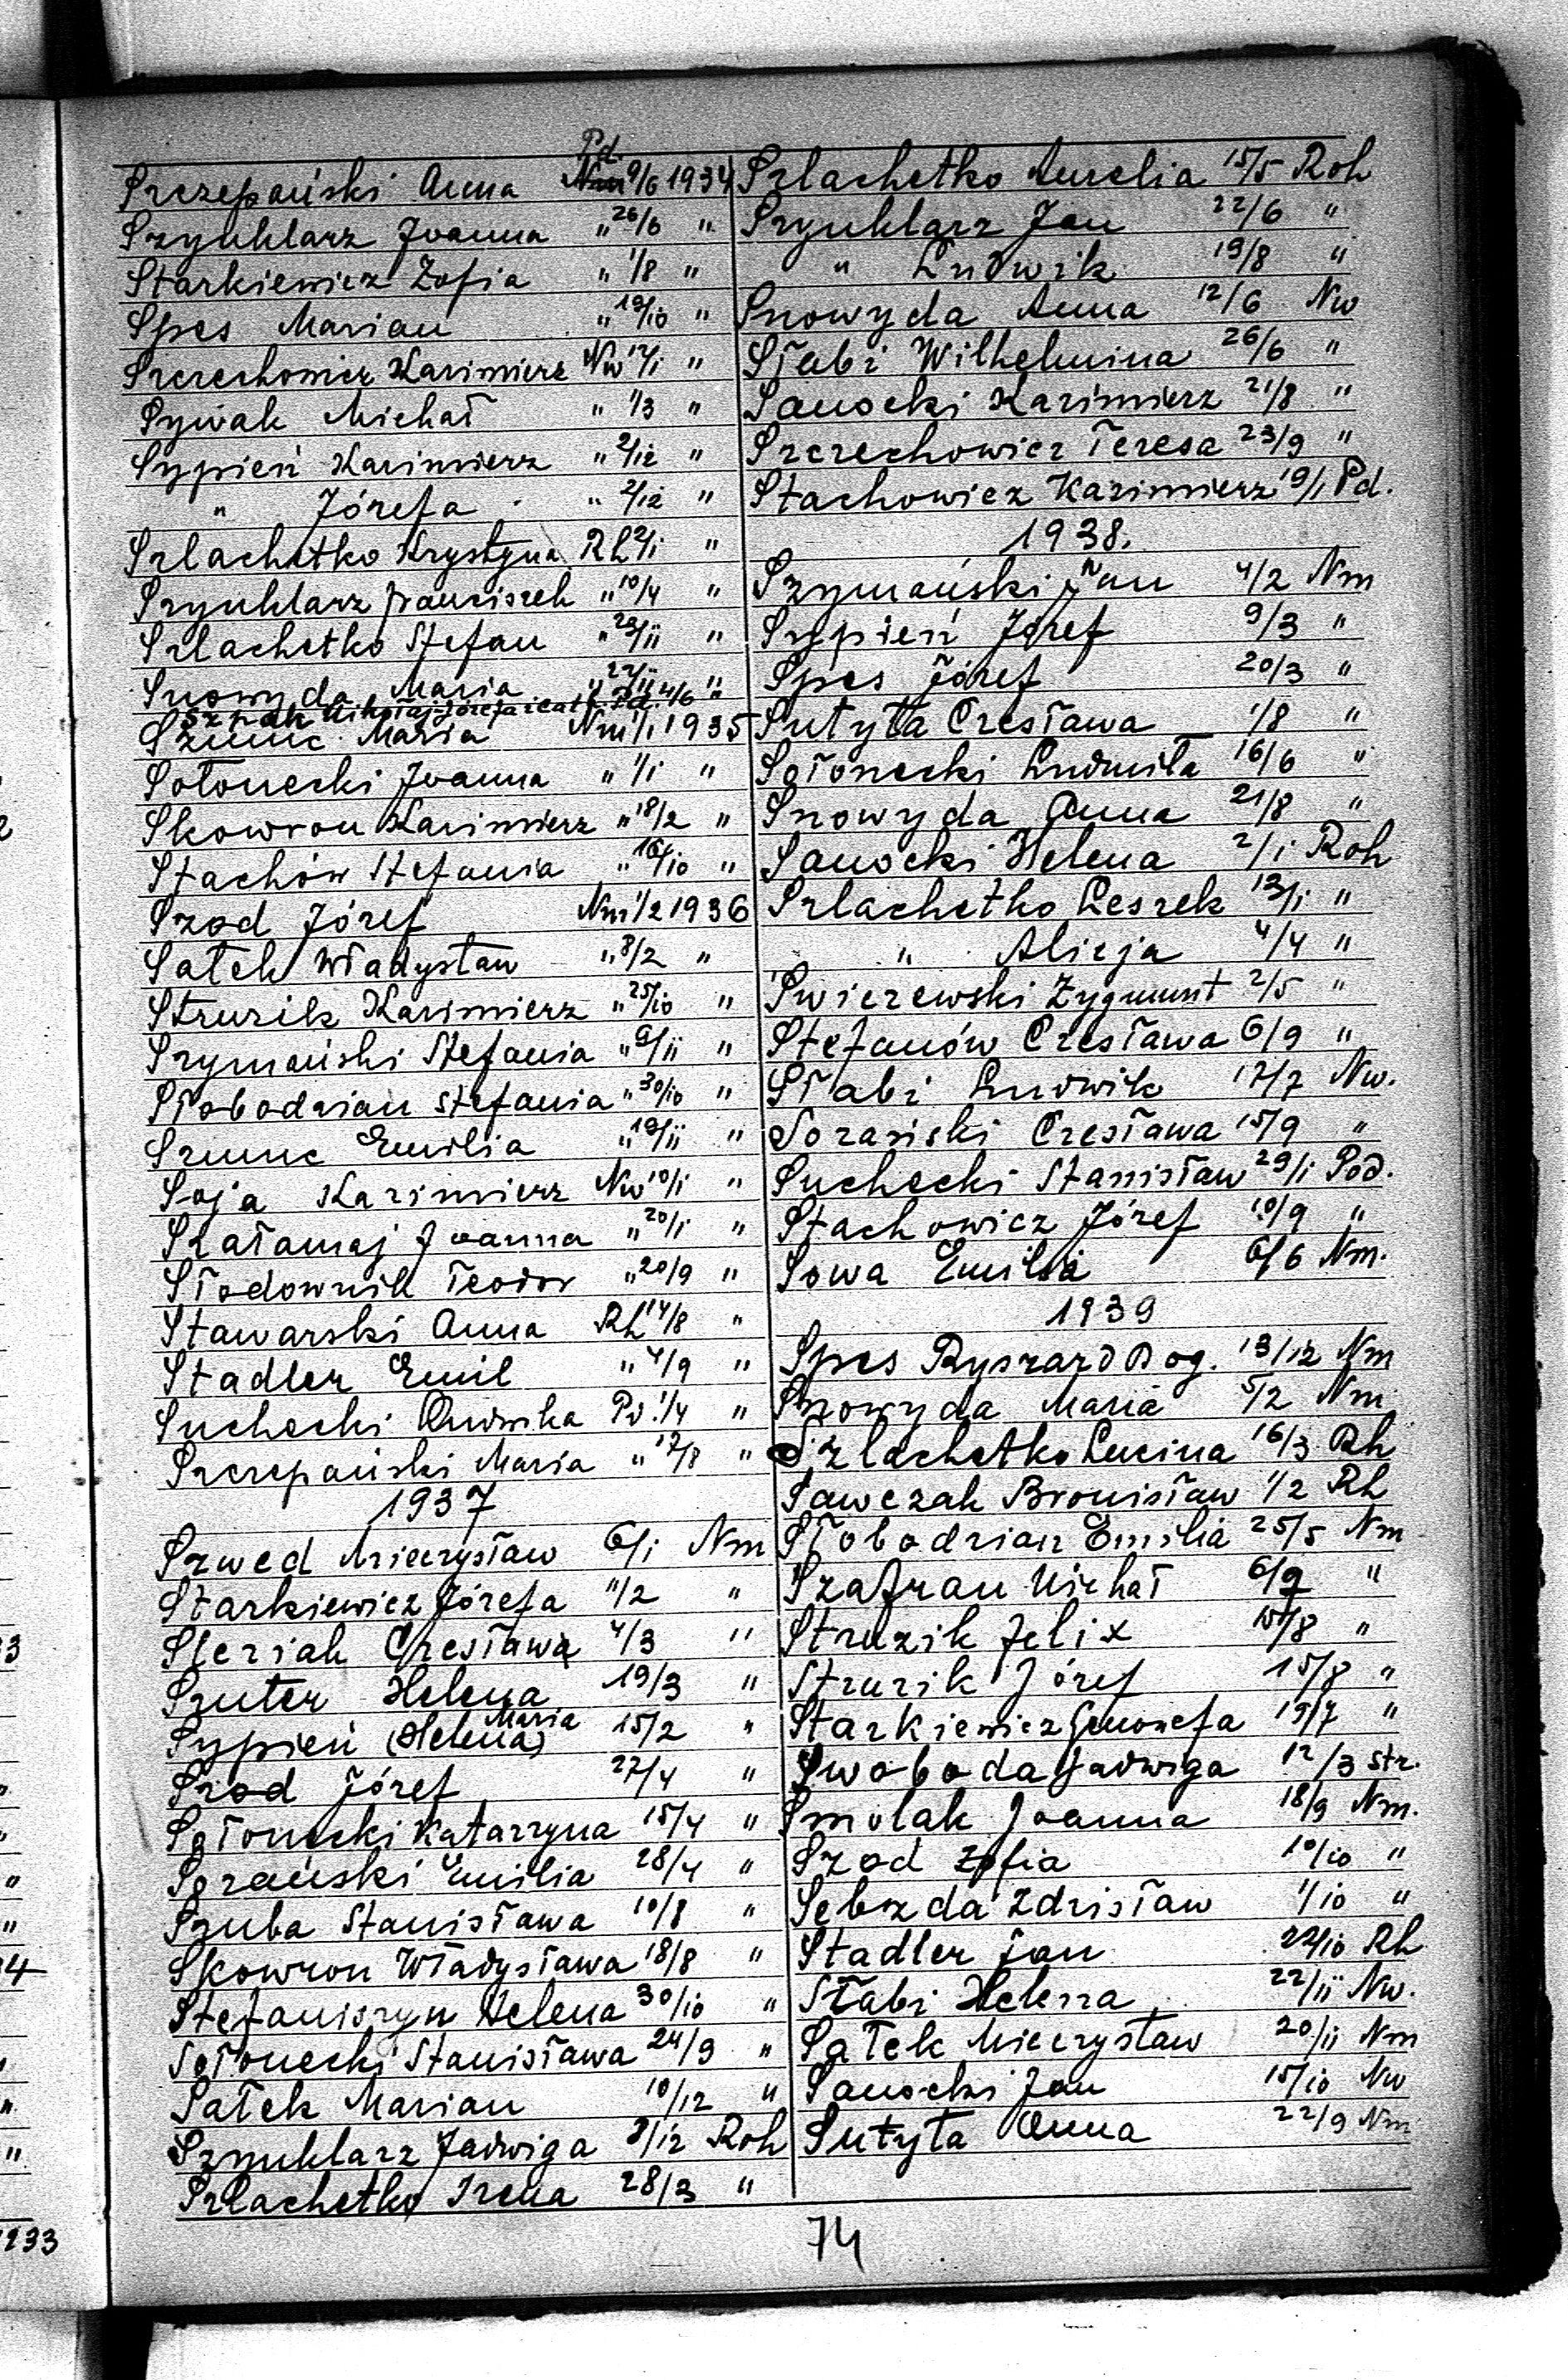 Pd.
Szczepański Anna Nm 9/6 1934
Szynklarz Joanna " 26/6 "
Starkiewicz Zofia " 1/8 "
Spes Marian " 19/10 "
Szczechowicz Kazimierz Nw 17/1 "
Sywak Michał " 1/3 "
Sypień Kazimierz " 2/12 "
" Józefa " 2/12 "
Szlachetko Krystyna Rh 2/1 "
Szynklarz Franciszek " 10/4 "
Szlachetko Stefan " 23/11 "
Snowyda Maria " 27/11 "
Sznak Mikołaj Józefa Pd. 4/6 "
Szmuc Maria Nm 1/1 1935
Sołonecki Joanna " 1/1 "
Skowron Kazimierz " 18/2 "
Stachów Stefania " 16/10 "
Szod Józef Nm 1/2 1936
Sałek Władysław " 8/2 "
Struzik Kazimierz " 25/10 "
Szymański Stefania " 9/11 "
Słobodzian Stefania " 30/10 "
Szmuc Emilia " 19/11 "
Soja Kazimierz Nw 10/1 "
Szałamaj Joanna " 20/1 "
Słodownik Teodor " 20/9 "
Stawarski Anna Rh 14/8 "
Stadler Emil " 4/9 "
Suchecki Ludwika Pd. 1/4 "
Szczepański Maria " 17/8 "
1937
Szwed Mieczysław 6/1 Nm
Starkiewicz Józefa 11/2 "
Śleziak Czesława 4/3 "
Szuter Helena 19/3 "
Sypień (Helena) Maria 15/2 "
Szod Józef 27/4 "
Sołonecki Katarzyna 15/4 "
Sozański Emilia 28/4 "
Szuba Stanisława 10/8 "
Skowron Władysława 18/8 "
Stefaniszyn Helena 30/10 "
Sołonecki Stanisława 24/9 "
Sałek Marian 10/12 "
Szynklarz Jadwiga 8/12 Roh
Szlachetko Irena 28/3 "
Szlachetko Aurelia 15/5 Roh
Szynklarz Jan 22/6 "
" Ludwik 19/8 "
Snowyda Anna 12/6 Nw
Słabi Wilhelmina 26/6 "
Sanocki Kazimierz 21/8 "
Szczechowicz Teresa 23/9 "
Stachowicz Kazimierz 19/1 Pd.
1938.
Szymański Jan 4/2 Nm
Sypień Józef 9/3 "
Spes Józef 20/3 "
Sutyła Czesława 1/8 "
Sołonecki Ludmiła 16/6 "
Snowyda Anna 21/8 "
Sanocki Helena 2/1 Roh
Szlachetko Leszek 13/1 "
" Alicja 4/4 "
Świczewski Zygmunt 2/5 "
Stefanów Czesława 6/9 "
Słabi Ludwik 17/7 Nw.
Sozański Czesława 15/9 "
Suchecki Stanisław 29/1 Pod.
Stachowicz Józef 10/9 "
Sowa Emilia 6/6 Nm.
1939
Spes Ryszard Bog. 13/12 Nm
Snowyda Maria 5/2 Nm
Szlachetko Lucina 16/3 Rh
Sawczak Bronisław 1/2 Rh
Słobodzian Emilia 25/5 Nm
Szafran Michał 6/9 "
Struzik Felix 15/8 "
Struzik Józef 15/8 "
Starkiewicz Genowefa 19/7 "
Swoboda Jadwiga 12/3 Str.
Smolak Joanna 18/9 Nm.
Szod Zofia 10/10 "
Sebzda Zdzisław 1/10 "
Stadler Jan 22/10 Rh
Słabi Helena 22/11 Nw.
Sałek Mieczysław 20/11 Nm
Sanocki Jan 15/10 Nw
Sutyła Anna 22/9 Nm
74